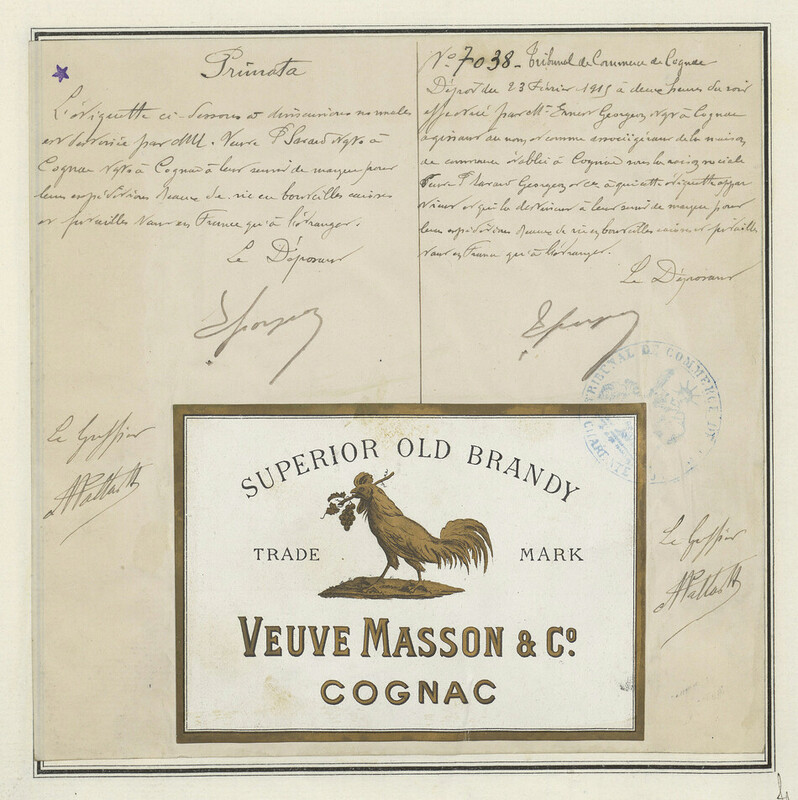 Primata
L'étiquette ci-dessous et dimensions normales
est destinée par MM. Veuve P. Sarazd Ngts à
Cognac Ngts à Cognac à leur servir de marque pour
leurs expéditions d'eaux de vie en bouteilles caisses
et futailles tant en France qu'à l'étranger.
Le Déposant
Le Greffier
No 7038 - Tribunal de Commerce de Cognac
Dépôt du 23 Février 1915 à deux heures du soir
effectué par Mr Ernest Georges Ngt à Cognac
agissant au nom et comme associé gérant de la maison
de commerce établie à Cognac sous la raison sociale
Veuve P. Georges et Cie à qui cette étiquette appar
tient et qui la destinent à leur servir de marque pour
leurs expéditions d'eaux de vie en bouteilles caisses et futailles
tant en France qu'à l'étranger.
Le Déposant
TRIBUNAL DE COMMERCE DE
CHARENTE
Le Greffier
SUPERIOR OLD BRANDY
TRADE MARK
VEUVE MASSON & Co.
COGNAC